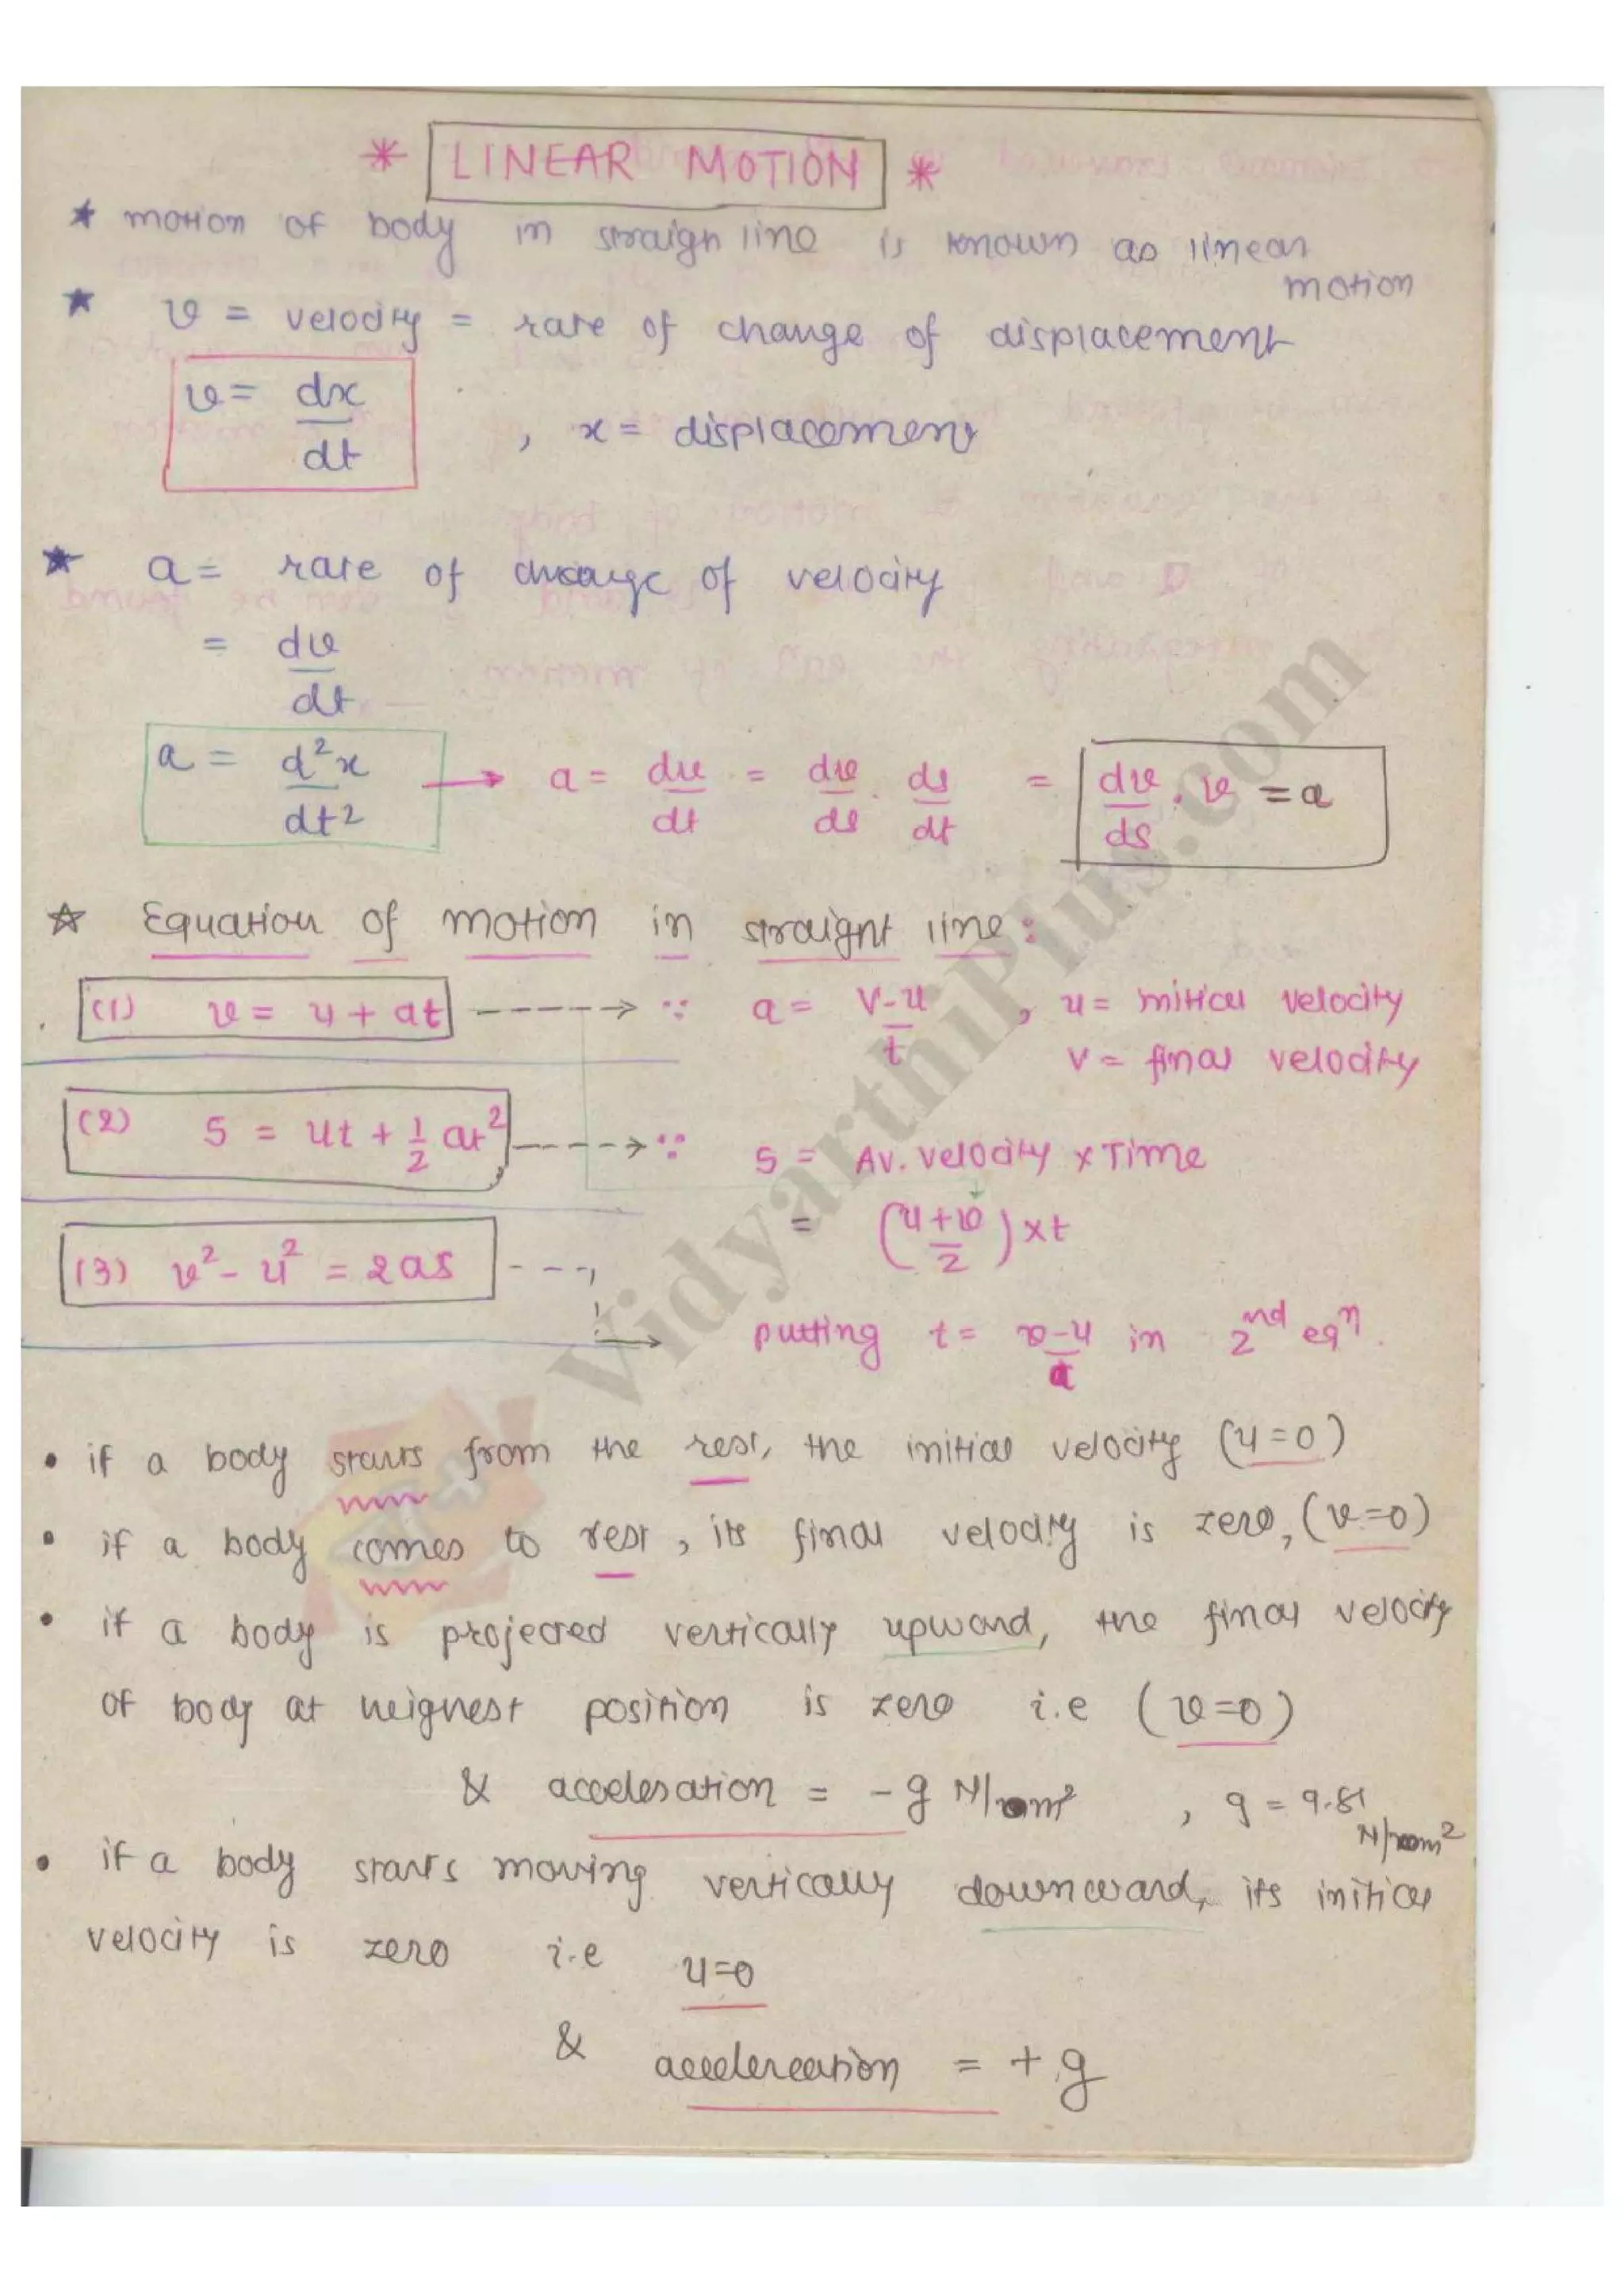 * LINEAR MOTION *
★ motion of body in straigh line is known as linear
motion
★ v = velocity = rate of change of displacement
v = dx/dt , x = displacement
★ a = rate of change of velocity
= dv/dt
a = d²x/dt² → a = dv/dt = dv/ds . ds/dt = dv/ds . v = a
☆ Equation of motion in straight line:
(1) v = u + at -----> ∵ a = v-u/t , u = initial velocity
v = final velocity
(2) s = ut + 1/2 at² -----> ∵ s = Av. velocity × Time
= (u+v/2) × t
(3) v² - u² = 2as ---
→ putting t = v-u/a in 2nd eqⁿ.
• if a body starts from the rest, the initial velocity (u=0)
• if a body comes to rest, its final velocity is zero, (v=0)
• if a body is projected vertically upward, the final velocity
of body at heighest position is zero i.e (v=0)
& acceleration = -g N/m² , g = 9.81
N/m²
• if a body starts moving vertically downward, its initial
velocity is zero i.e u=0
& acceleration = +g
VidyarthiPlus.com